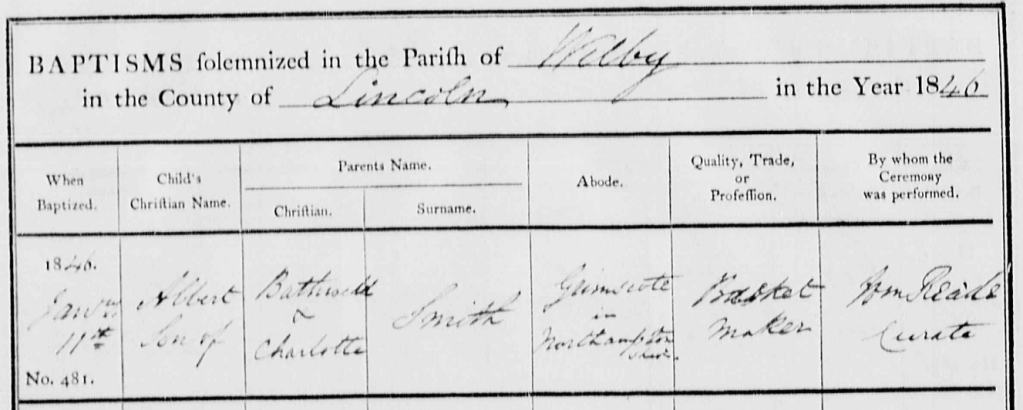 BAPTISMS ſolemnized in the Pariſh of Welby
in the County of Lincoln in the Year 1846
When Baptized.
Child's Chriſtian Name.
Parents Name.
Chriſtian.
Surname.
Abode.
Quality, Trade, or Profeſſion.
By whom the Ceremony was performed.
1846.
Janry 11th
No. 481.
Albert
Son of
Charlotte
Smith
Grimscote
in
Northampton
shire.
Basket
Maker
Wm Reade
Curate